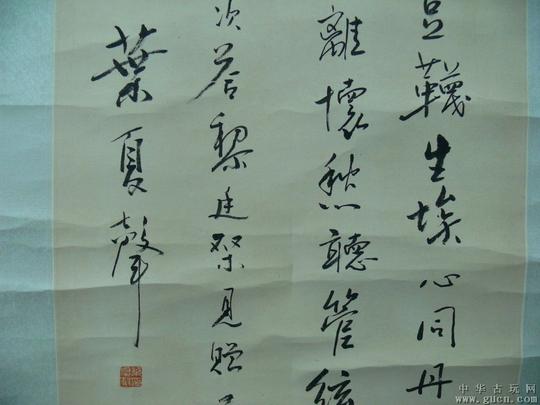 韈生埃心同丹
離懷愁聽管絃
次荅黎廷棨見贈
葉夏聲
中华古玩网
www.gucn.com